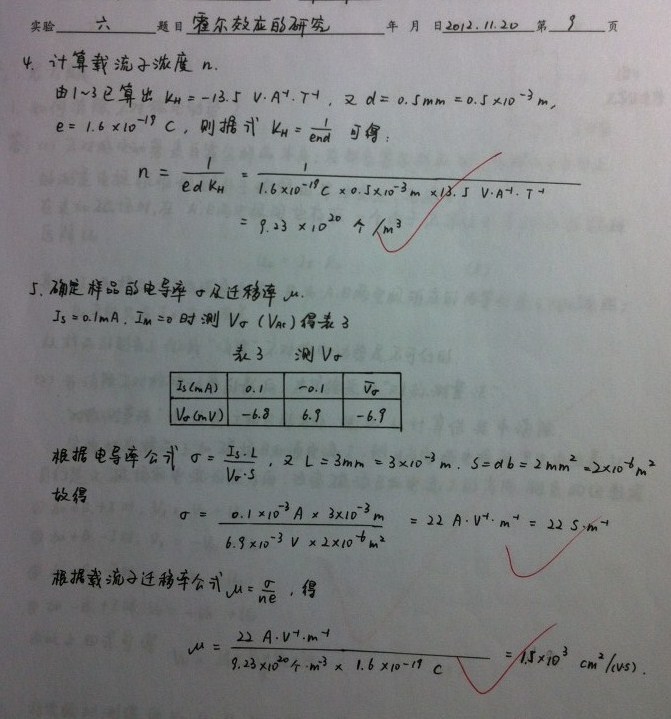 实验 六 题目 霍尔效应的研究 年 月 日 2012.11.20 第 9 页
4. 计算载流子浓度 n.
由1~3已算出 K_H = -13.5 V·A⁻¹·T⁻¹, 又 d = 0.5mm = 0.5×10⁻³ m,
e = 1.6×10⁻¹⁹ C, 则据式 K_H = 1/end 可得:
n = 1/(e d K_H) = 1/(1.6×10⁻¹⁹ C × 0.5×10⁻³ m × 13.5 V·A⁻¹·T⁻¹)
= 9.23 × 10²⁰ 个/m³
5. 确定样品的电导率 σ 及迁移率 μ.
Is = 0.1mA, I_M = 0 时测 Vσ (V_AC) 得表3
表3 测Vσ
Is(mA) 0.1 -0.1 V̄σ
Vσ(mV) -6.8 6.9 -6.9
根据电导率公式 σ = Is·L/(Vσ·S), 又 L = 3mm = 3×10⁻³ m. S = db = 2mm² = 2×10⁻⁶ m²
故得
σ = (0.1×10⁻³ A × 3×10⁻³ m)/(6.9×10⁻³ V × 2×10⁻⁶ m²) = 22 A·V⁻¹·m⁻¹ = 22 S·m⁻¹
根据载流子迁移率公式 μ = σ/ne, 得
μ = (22 A·V⁻¹·m⁻¹)/(9.23×10²⁰ 个·m⁻³ × 1.6×10⁻¹⁹ C) = 1.5×10³ cm²/(VS).